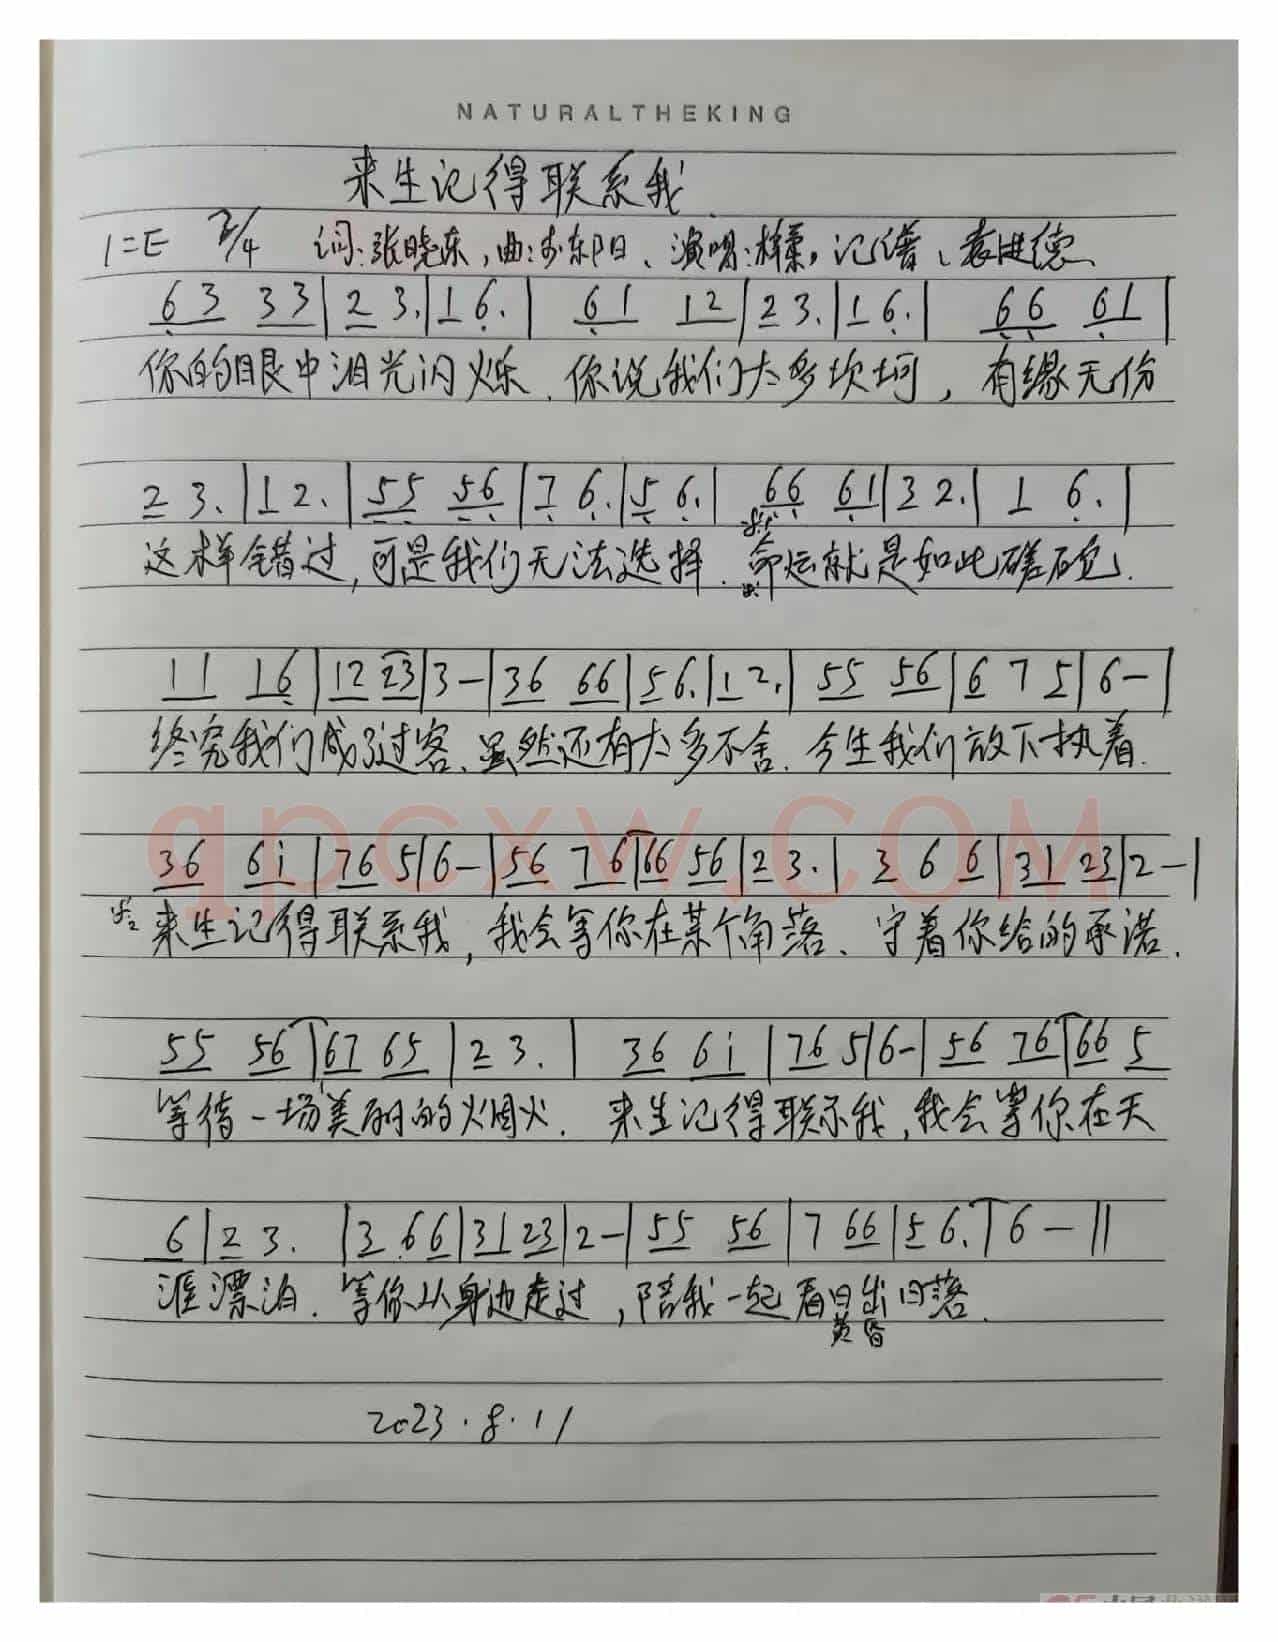 NATURALTHEKING
来生记得联系我
1=E 2/4 词:张晓东,曲:李东阳、演唱:梓蕠,记谱、袁进德
63 33|2 3.|1 6.| 61 12|2 3.|1 6.| 66 61|
你的眼中泪光闪烁.你说我们太多坎坷,有缘无份
2 3.|1 2.|55 56|7 6.|5 6.| 66 61|3 2.|1 6.|
这样错过,可是我们无法选择.命运就是如此磋砣.
11 16|12 23|3-|36 66|56.|12.|55 56|6 7 5|6-|
终究我们成了过客、虽然还有太多不舍.今生我们放下执着.
qpcxw.COM
36 6i|76 5|6-|56 76|66 56|2 3.|3 6 6|31 23|2-|
来生记得联系我,我会等你在某个角落、守着你给的承诺.
55 56|67 65|2 3.| 36 6i|76 5|6-|56 76|66 5
等待一场美丽的烟火. 来生记得联系我,我会等你在天
6|2 3.|3 66|31 23|2-|55 56|7 66|5 6.|6-||
涯漂泊.等你从身边走过,陪我一起看日出日落.
黄昏
2023.8.11